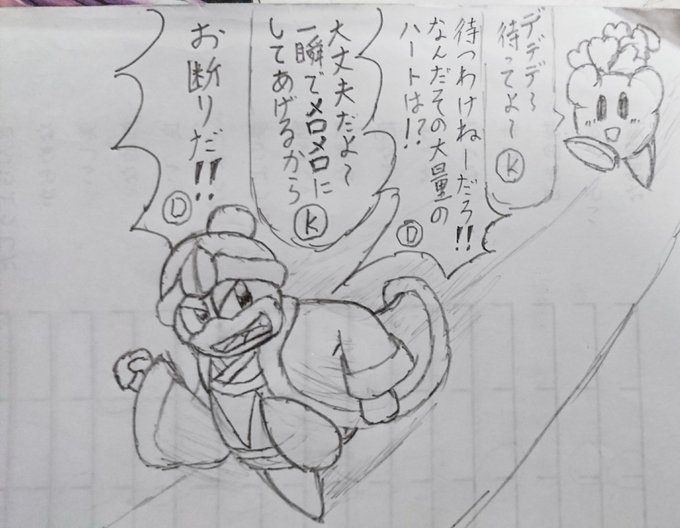 デデデ〜
待ってよ〜
K
待つわけねーだろ!!
なんだその大量の
ハートは!?
D
大丈夫だよ〜
一瞬でメロメロに
してあげるから
K
お断りだ!!
D